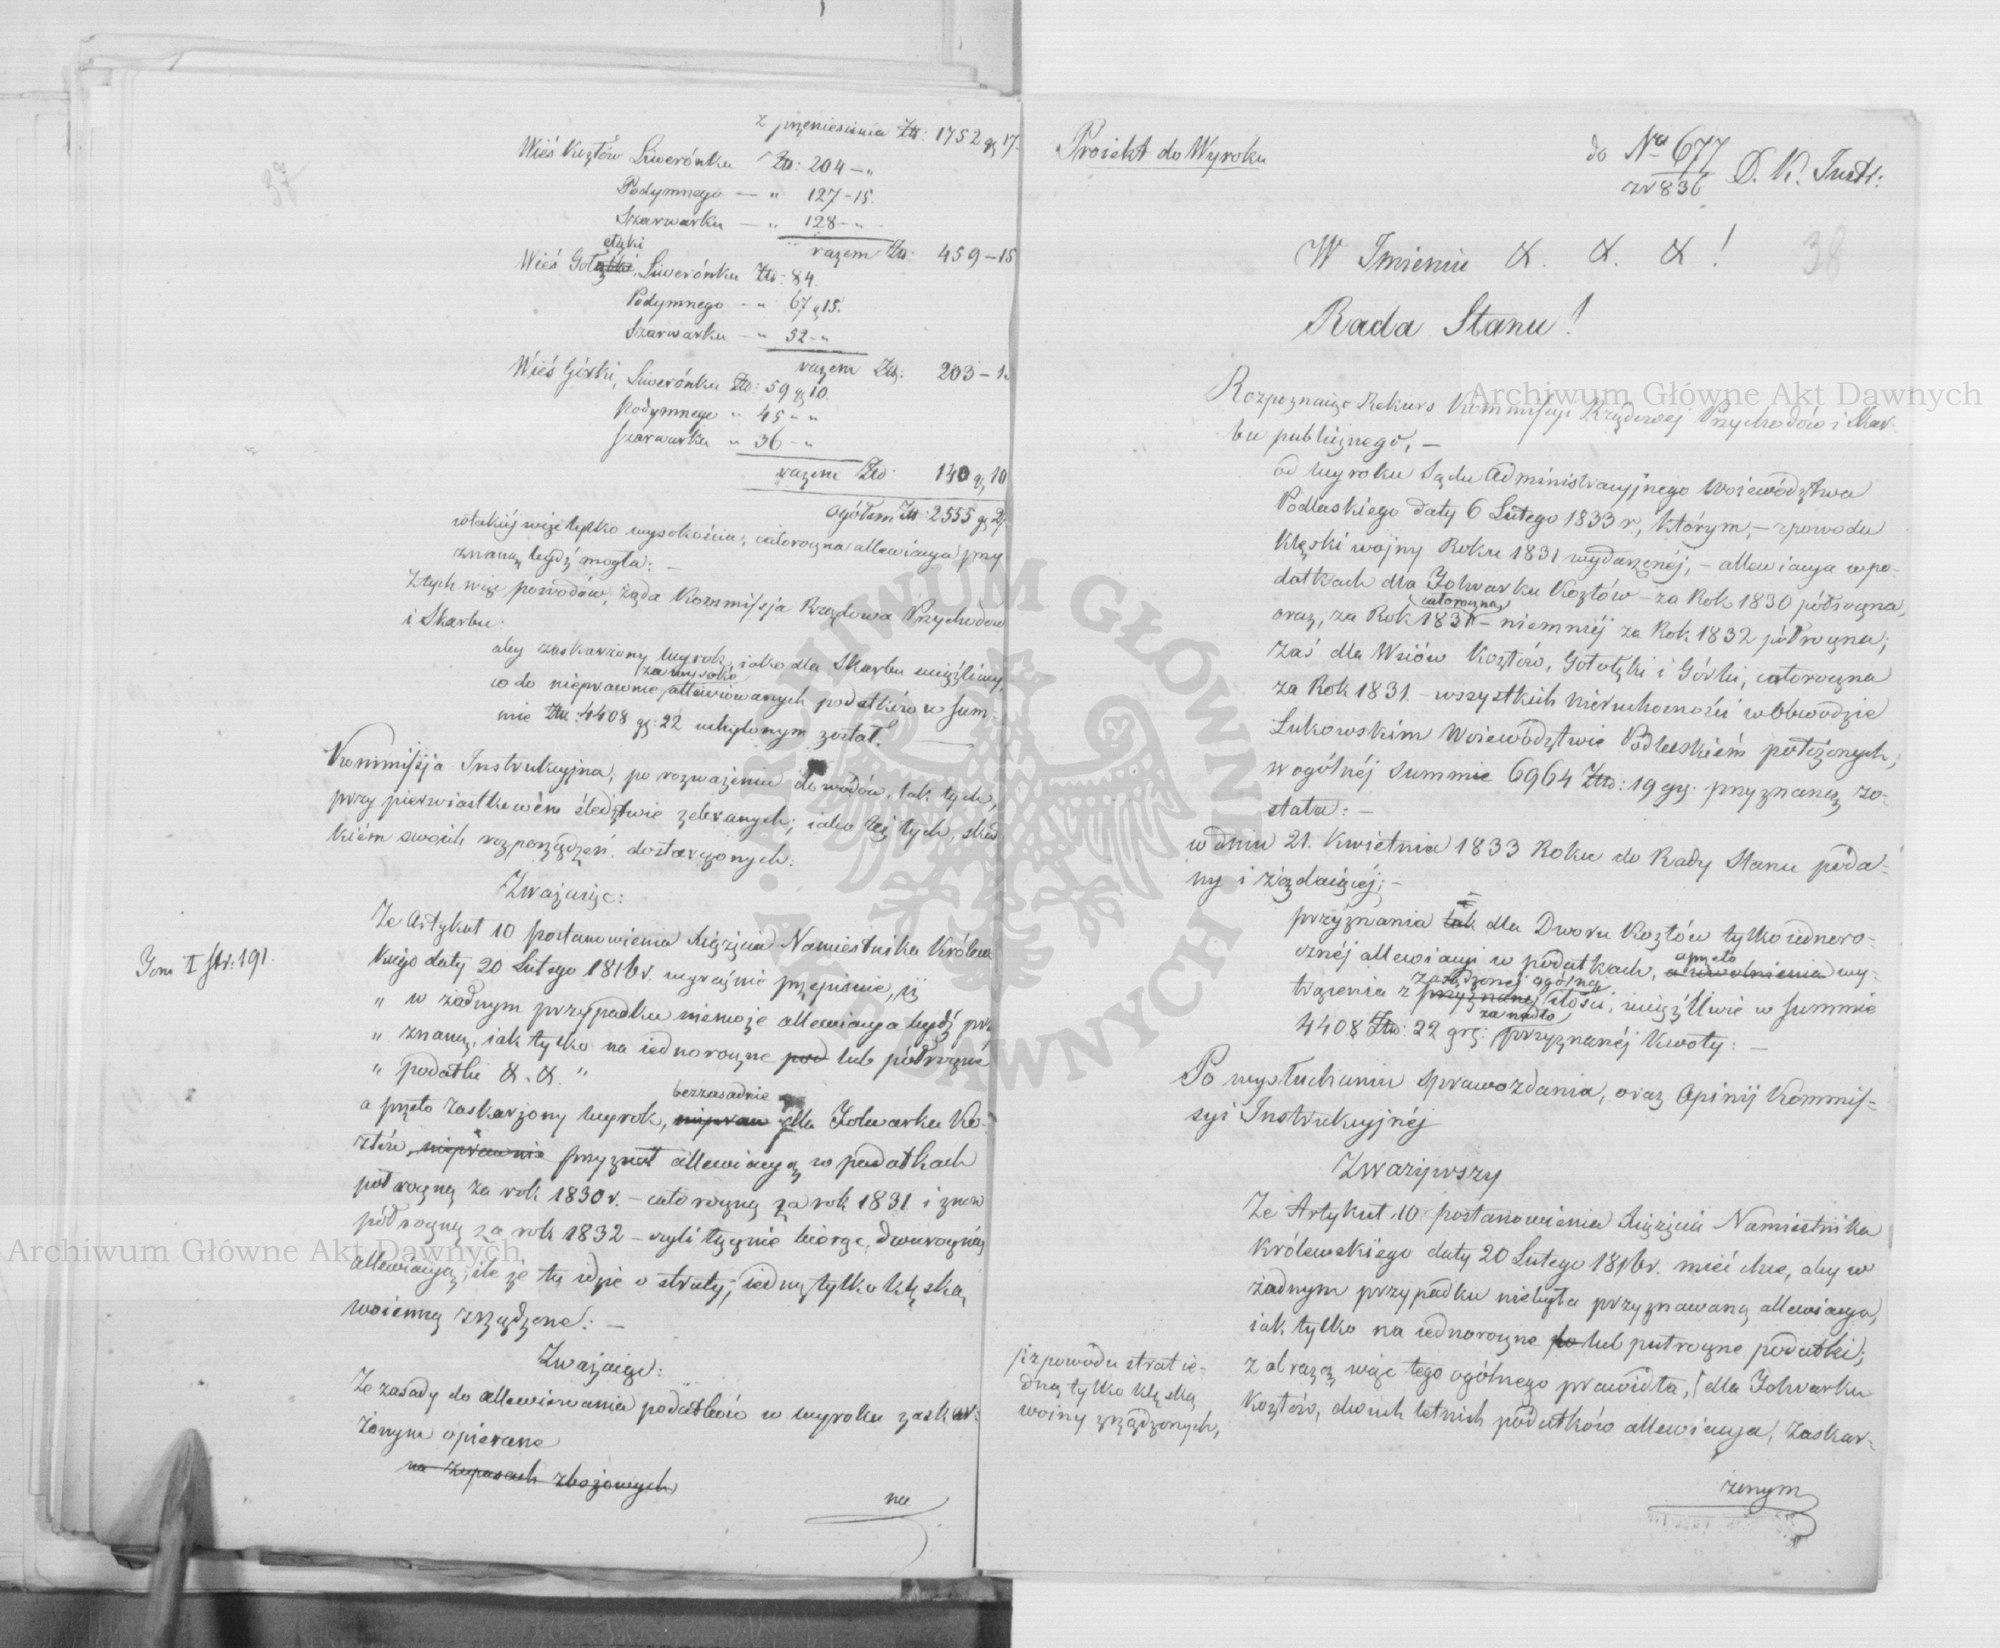 z przeniesienia Złł: 1752 gr 17.
Wieś Kozłów Liwerónku Zło: 204 – „
Podymnego — „ 127 – 15.
Szarwarku — „ 128 – „
razem Złł: 459 – 15
Wieś Gołąbki ełązki Liwerónku Złł: 84.
Podymnego – „ 67 g 15.
Szarwarku – „ 52 – „
razem Złł: 203 – 1
Wieś Górki, Liwerónku Złł: 59 gr 10.
Podymnego „ 45 – „
Szarwarku „ 36 – „
razem Złł: 140 gr 10
Ogółem Złł: 2555 gr 27
w takiéj więc tylko wysokościa, całoroczna allewiacya przy
znaną bydź mogła: –
Z tych więc powodów, żąda Kommissja Rządowa Przychodów
i Skarbu:
aby zaskarżony wyrok, jako dla Skarbu uciążliwy,
co do nieprawnie za wysoko allewiowanych podatków w sum-
mie Złł: 4408 gr: 22 uchylonym został.
Kommissja Instrukcyjna, po rozważeniu dowodów, tak tych,
przy pierwiastkowém śledztwie zebranych; iako też tych, skut
kiém swoich rozporządzeń, dostarczonych:
Zważaiąc:
Że Artykuł 10 postanowienia Xięzięcia Namiestnika Królew
skiego daty 20 Lutego 1816 r. wyraźnie przepisuie, „iż
„ w żadnym przypadku niemoże allewiacya bydź prz
„ znaną, iak tylko na iednoroczne pod lub półroczne
„ podatki &. &. "
Tom I str: 191.
a przeto zaskarżony wyrok, nieprawn bezzasadnie dla Folwarku Ko-
złów, nieprawnie przyznał allewiacyą w podatkach
półroczną za rok 1830 r. – całoroczną za rok 1831 i znow
półroczną za rok 1832 – czyli łącznie biorąc, dwuroczną
allewiacyą, ile że tu idzie o straty, iedną tylko klęską
woienną zrządzone: –
Zważaiąc:
Że zasady do allewiowania podatków w wyroku zaskar-
żonym opierane
na zapasach zbożowych
na
Proiekt do Wyroku
do Nra 677 / zr 836 D. K. Instr:
38
W Imieniu &. &. & !
Rada Stanu!
Rozpoznaiąc Rekurs Kommissyi Rządowej Przychodów i Skar-
bu publicznego, –
od wyroku Sądu Administracyjnego Województwa
Podlaskiego daty 6 Lutego 1833 r., którym, – z powodu
klęski wojny Roku 1831 wydarzonéj, – allewiacya w po-
datkach dla Folwarku Kozłów – za Rok 1830 półroczna,
oraz, za Rok 1831 całoroczna – niemniéj za Rok 1832 półroczna;
zaś dla Wsiów Kozłów, Gołełązki i Górki, całoroczna
za Rok 1831. – wszystkich nieruchomości w Obwodzie
Łukowskim Województwie Podlaskiém położonych,
w ogólnéj summie 6964 Złł: 19 gr: przyznaną zo-
stała: –
w dniu 21. Kwietnia 1833 Roku do Rady Stanu poda-
ny i żądaiący: –
przyznania tak dla Dworu Kozłów tylko iednoro-
cznéj allewiacyi w podatkach, a uwolnienia a przeto wy-
trącenia z przyznanej zasądzonej ogólnéj ilości, uciążliwie w summie
4408 Złł: 22 gr: za nadto przyznanéj kwoty: –
Po wysłuchaniu sprawozdania, oraz Opinii Kommis-
syi Instrukcyjnéj
Zważywszy
Że Artykuł 10. postanowienia Xięzięcia Namiestnika
Królewskiego daty 20 Lutego 1816 r. mieć chce, aby w
żadnym przypadku niebyła przyznawaną allewiacya,
iak tylko na iednoroczne po lub putroczne podatki;
z obrazą więc tego ogólnego prawidła, | dla Folwarku
Kozłów, dwuch letnich podatków allewiacya, zaskar-
żonym
| z powodu strat ie-
dną tylko klęską
woiny zrządzonych,
Archiwum Główne Akt Dawnych
Archiwum Główne Akt Dawnych
ARCHIWUM GŁÓWNE AKT DAWNYCH